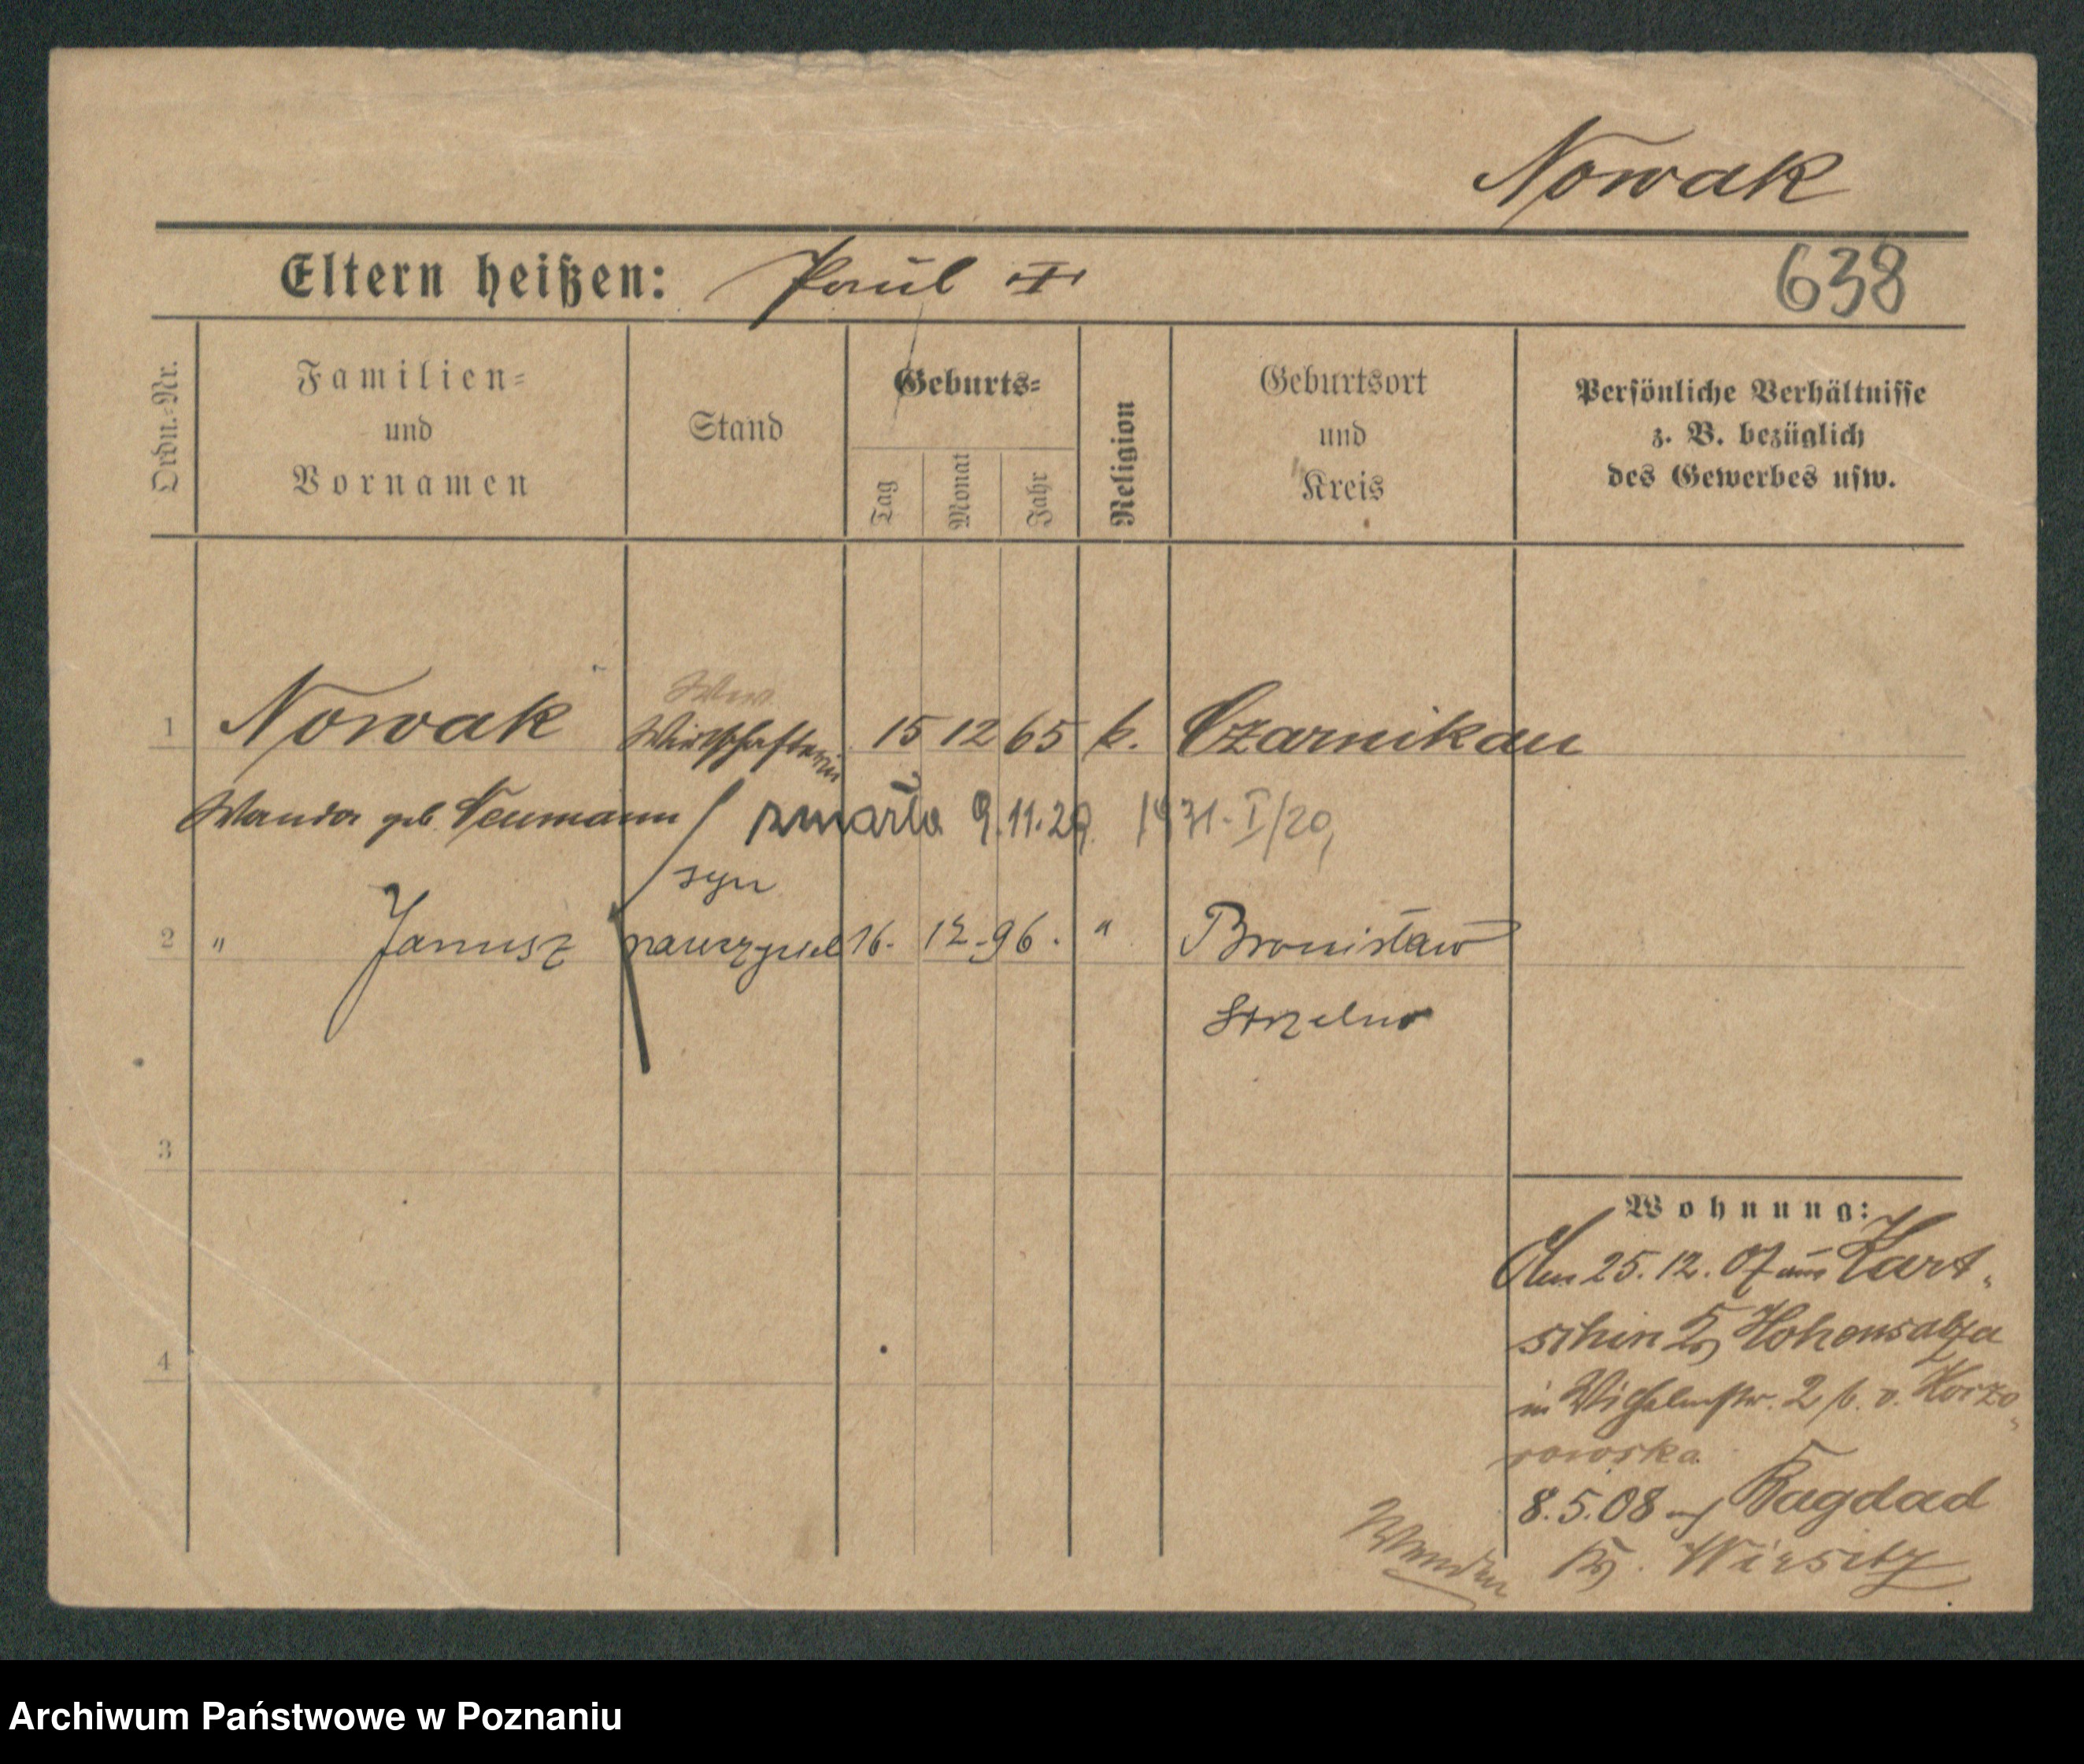 Nowak
Eltern heißen: Paul
638
Ordn.-Nr.
Familien-
und
Vornamen
Stand
Geburts-
Tag
Monat
Jahr
Religion
Geburtsort
und
Kreis
Persönliche Verhältnisse
z. B. bezüglich
des Gewerbes usw.
Www
1 Nowak Wirtschafterin 15 12 65 k. Czarnikau
Wanda geb. Neumann zmarła 9.11.29. 1931-I/20,
syn
2 " Janusz nauczyciel 16. 12.96. " Bronisław
Strzelno
3
4
Wohnung:
Am 25.12.07 aus Kart-
schin Kr Hohensalza
in Wilhelmstr. 2 b. v. Korzo-
rowska
8.5.08 Bagdad
Kr. Wirsitz
Wenden
Archiwum Państwowe w Poznaniu